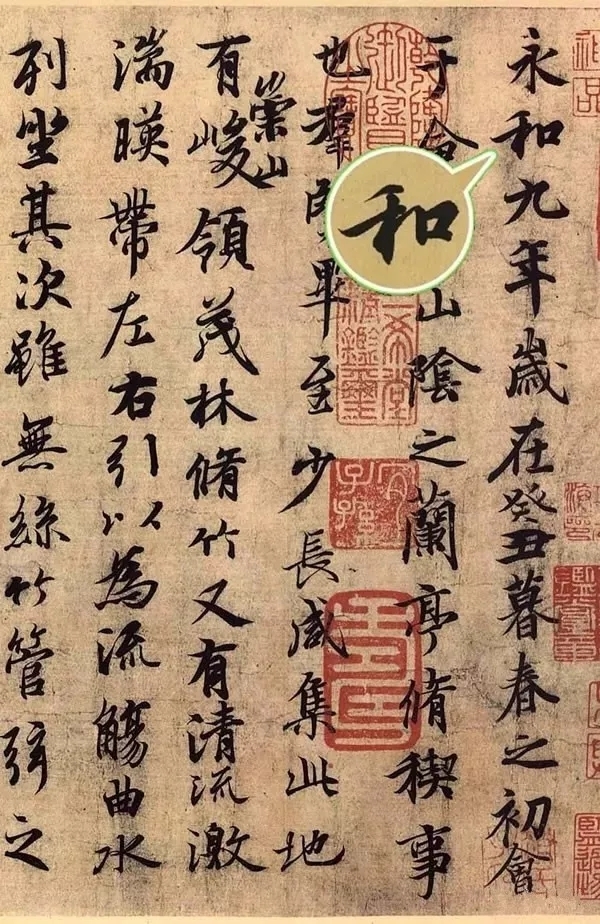 永和九年歲在癸丑暮春之初會
于會山陰之蘭亭脩稧事
也羣賢畢至少長咸集此地
有崇山峻領茂林脩竹又有清流激
湍暎帶左右引以為流觴曲水
列坐其次雖無絲竹管弦之
和